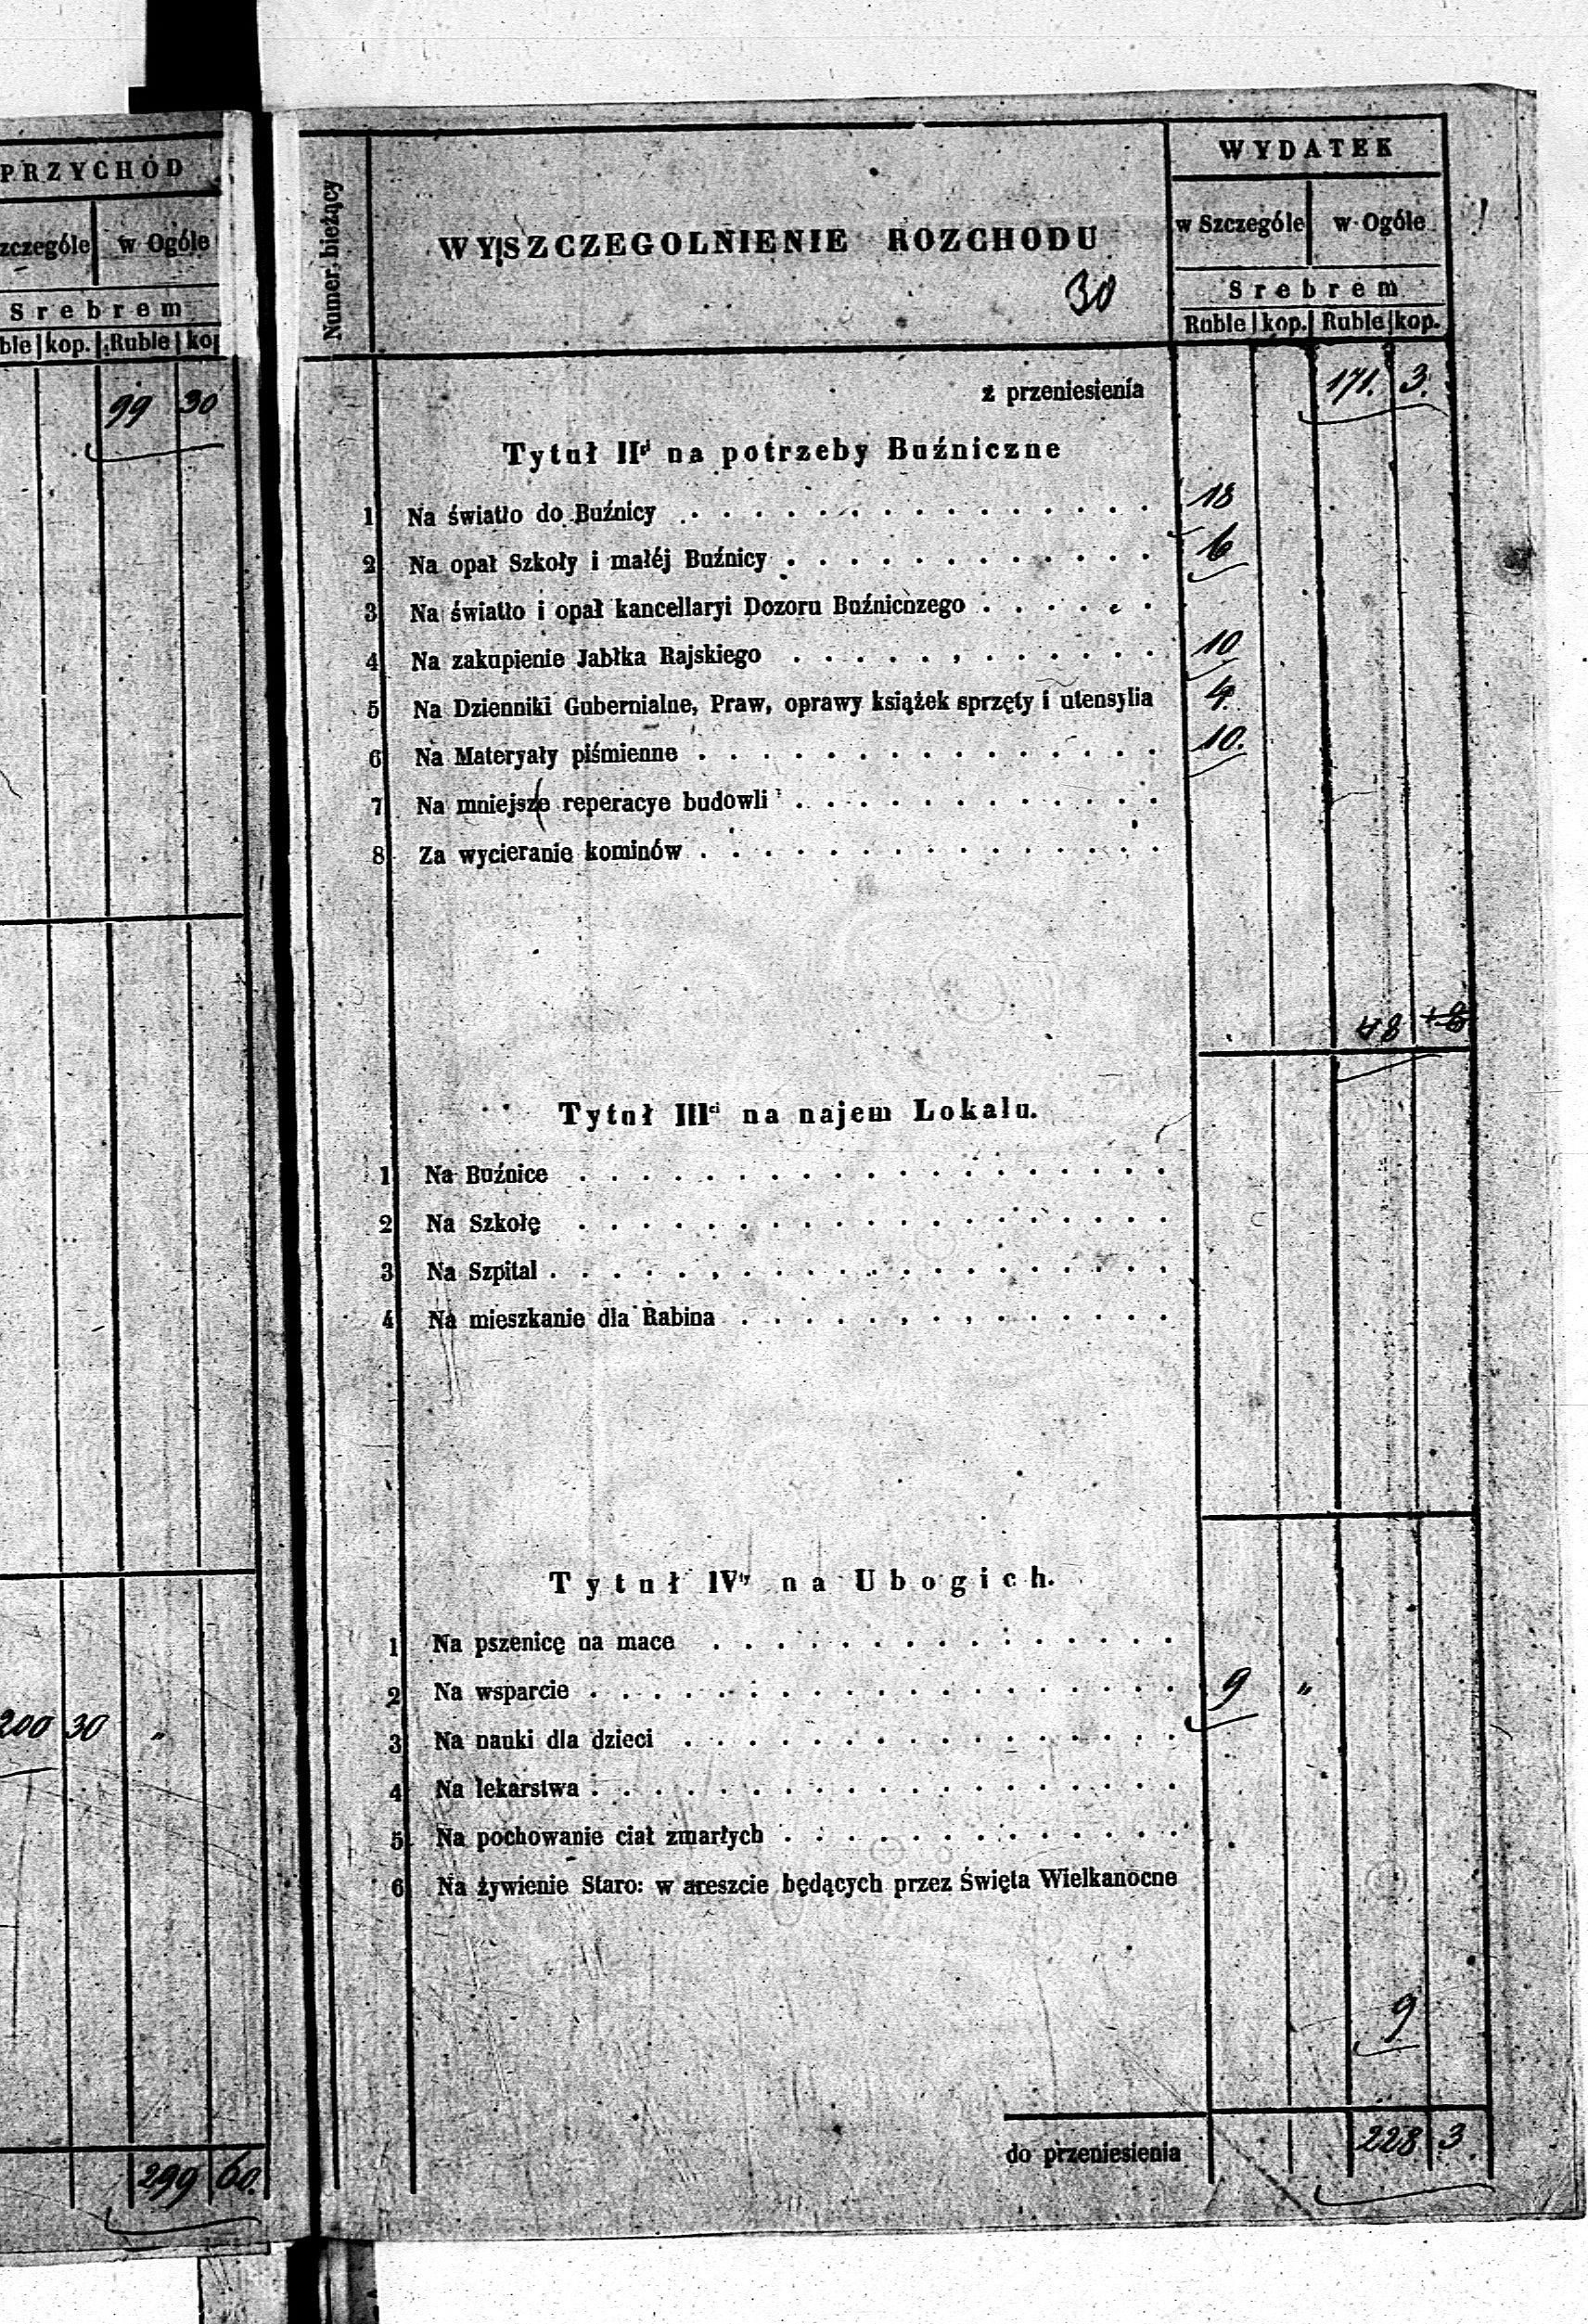 PRZYCHÓD
zczególe w Ogóle
Srebrem
ble kop. Ruble ko
99 30
200 30 "
299 60.
WYDATEK
Numer bieżący
WYSZCZEGOLNIENIE ROZCHODU
w Szczególe w Ogóle
30
Srebrem
Ruble kop. Ruble kop.
z przeniesienia 171. 3.
Tytuł IIgi na potrzeby Buźniczne
1 Na światło do Buźnicy 18
2 Na opał Szkoły i małéj Buźnicy 6
3 Na światło i opał kancellaryi Dozoru Buźniczego
4 Na zakupienie Jabłka Rajskiego 10
5 Na Dzienniki Gubernialne, Praw, oprawy książek sprzęty i utensylia 4
6 Na Materyały piśmienne 10.
7 Na mniejsze reperacye budowli
8 Za wycieranie kominów
48
Tytuł IIIci na najem Lokalu.
1 Na Buźnice
2 Na Szkołę
3 Na Szpital
4 Na mieszkanie dla Rabina
Tytuł IVty na Ubogich.
1 Na pszenicę na mace
2 Na wsparcie 9 "
3 Na nauki dla dzieci
4 Na lekarstwa
5 Na pochowanie ciał zmarłych
6 Na żywienie Staro: w areszcie będących przez Święta Wielkanocne
9
do przeniesienia 228 3.